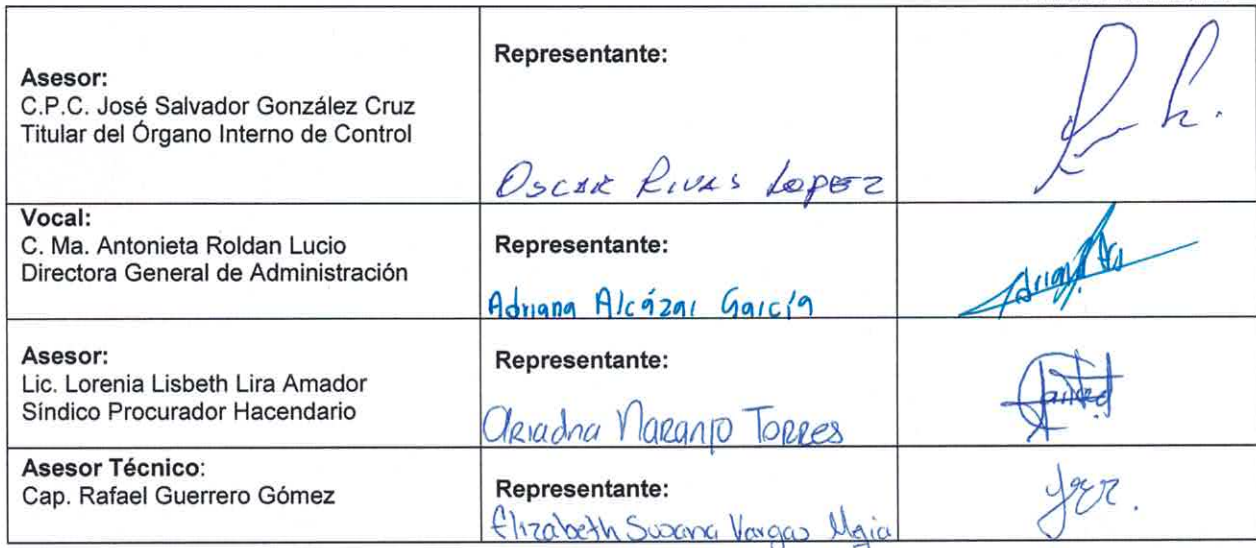 Asesor:
C.P.C. José Salvador González Cruz
Titular del Órgano Interno de Control
Representante:
Oscar Rivas Lopez
Vocal:
C. Ma. Antonieta Roldan Lucio
Directora General de Administración
Representante:
Adriana Alcázar García
Asesor:
Lic. Lorenia Lisbeth Lira Amador
Síndico Procurador Hacendario
Representante:
Ariadna Naranjo Torres
Asesor Técnico:
Cap. Rafael Guerrero Gómez
Representante:
Elizabeth Susana Vargas Mejia